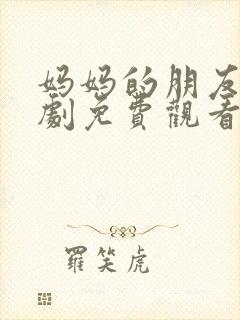 妈妈的朋友
劇免費觀看
羅笑虎